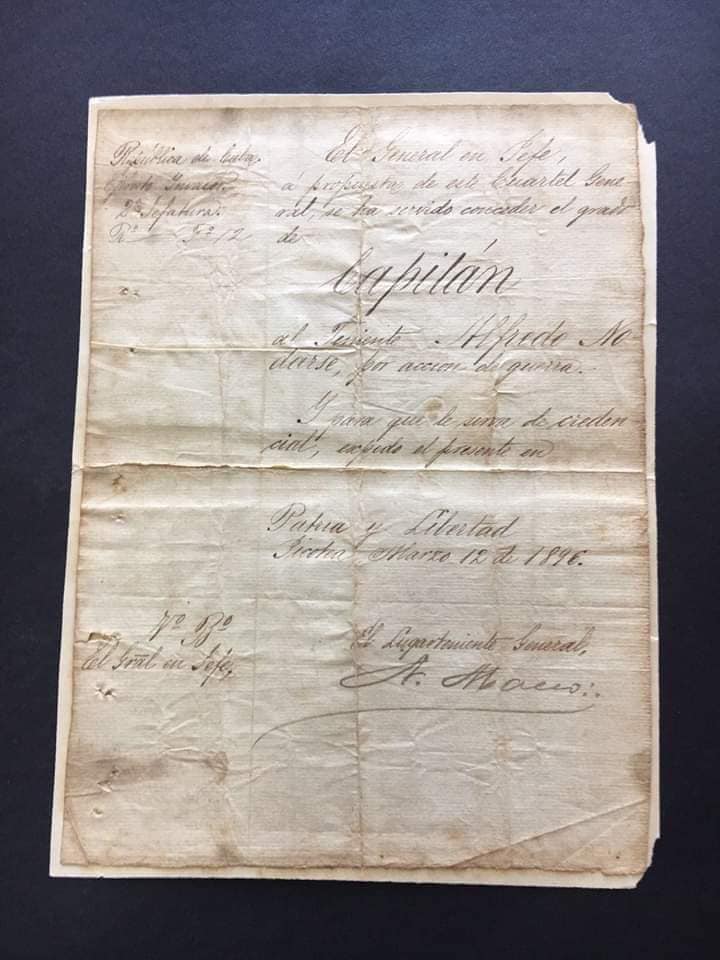 República de Cuba.
Ejército Invasor.
2ª Jefatura.
Rº Fº 12
El General en Jefe,
á propuesta de este Cuartel Gene-
ral, se ha servido conceder el grado
de
Capitán
al Teniente Alfredo No-
darse, por acción de guerra.
Y para que le sirva de creden-
cial, expido el presente en
Patria y Libertad
Marzo 12 de 1896.
Vº Bº
El Gral en Jefe,
El Lugarteniente General,
A. Maceo